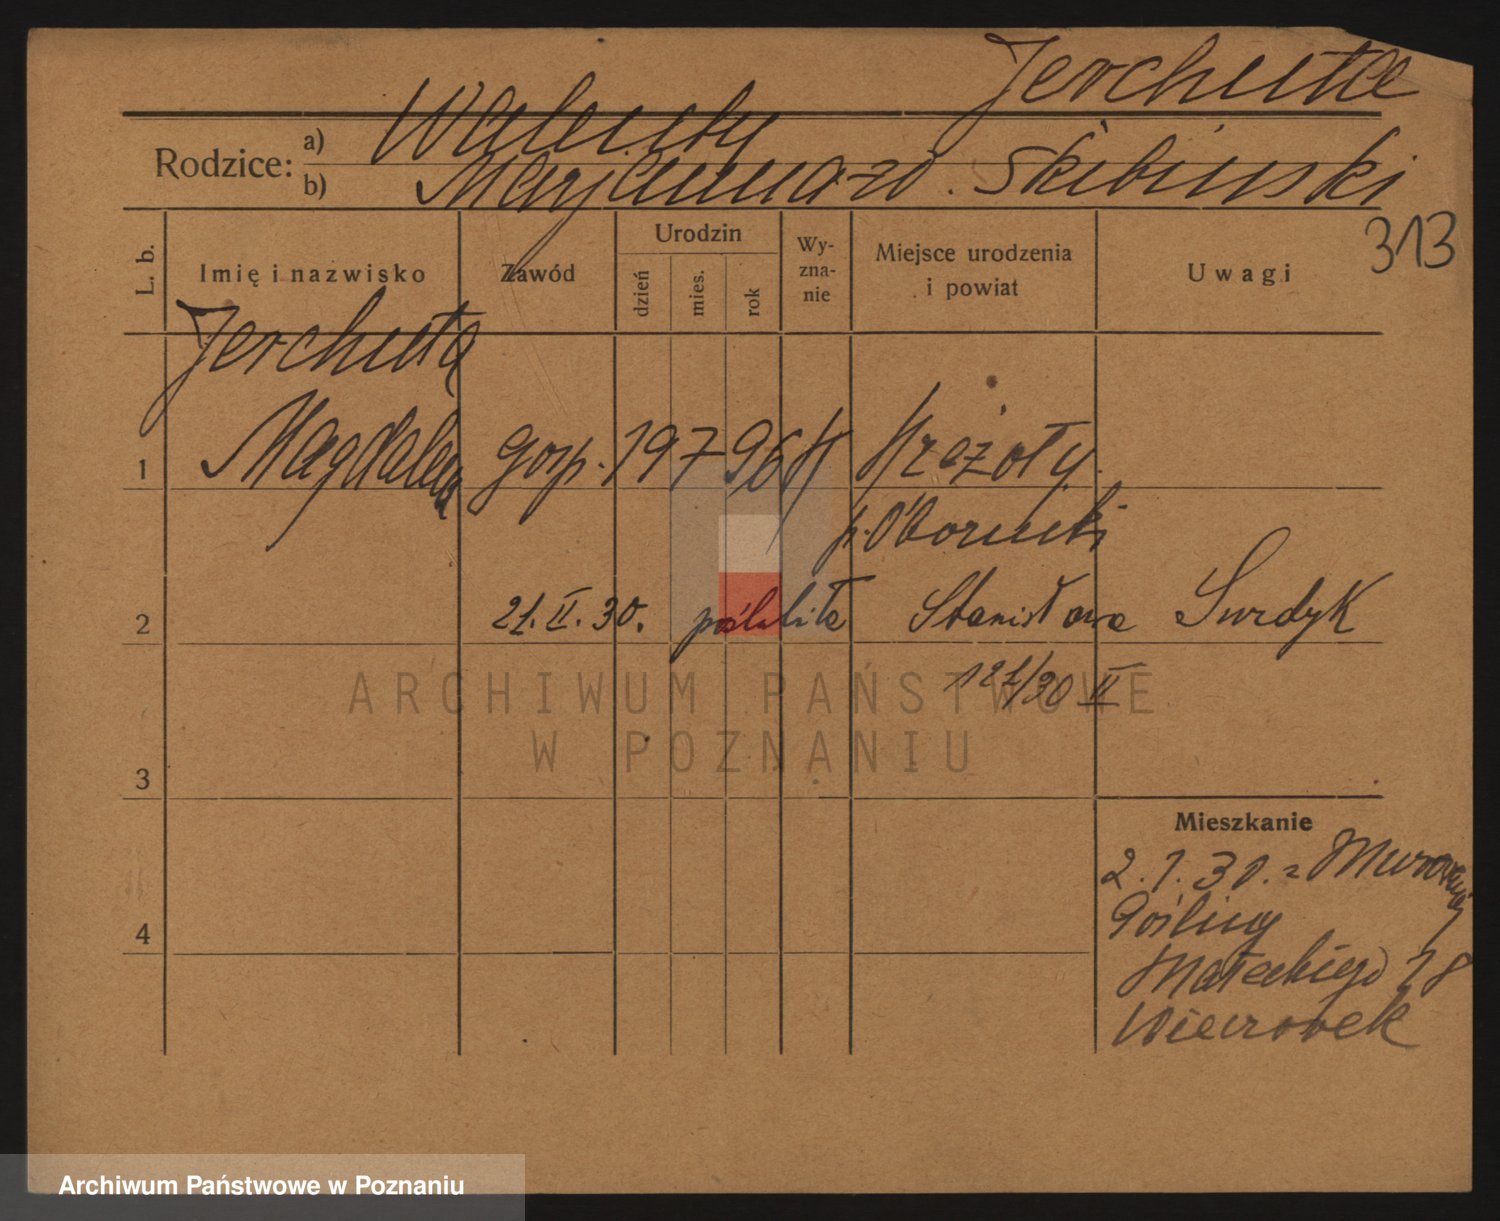 Jerchuta
Rodzice:
a) Walenty
b) Marjanna zd. Skibinski
313
L. b.
Imię i nazwisko
Zawód
Urodzin
dzień
mies.
rok
Wy-
zna-
nie
Miejsce urodzenia
i powiat
Uwagi
Jerchuta
1 Magdalena gosp. 19 7 96
p. Obornicki
2 21. II. 30. Stanisława Surdyk
121/30 II
3
Mieszkanie
2. 1. 30. z Murowanej
4 Gośliny
Małeckiego 18
ARCHIWUM PAŃSTWOWE
W POZNANIU
Archiwum Państwowe w Poznaniu